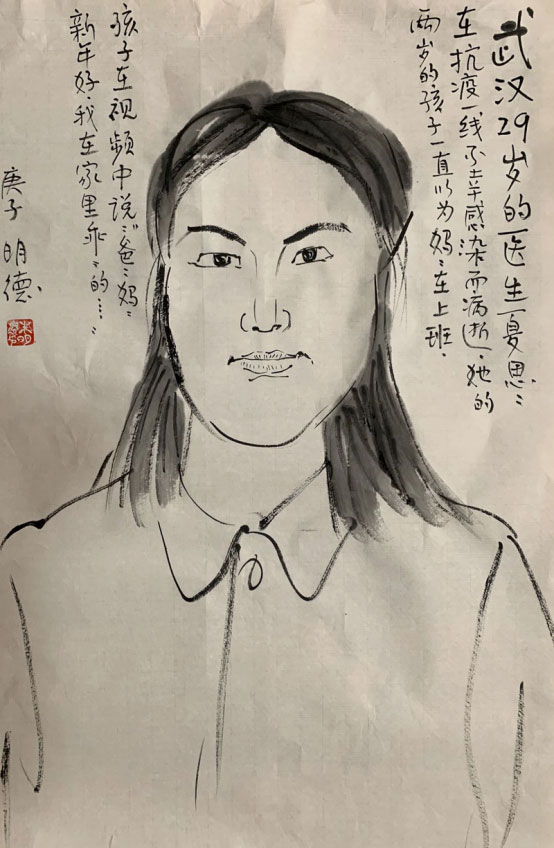 武汉29岁的医生夏思思
在抗疫一线不幸感染而病逝．她的
两岁的孩子一直以为妈妈在上班．
孩子在视频中说：“爸爸妈妈
新年好．我在家里乖乖的……
庚子 明德